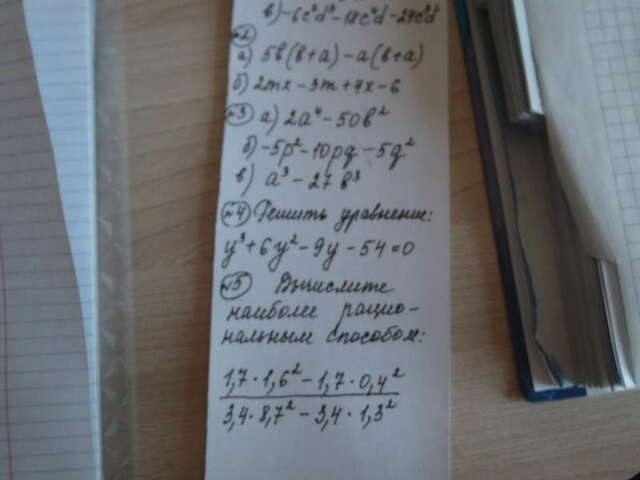 в) -6c²d² - 18c⁴d - 24c³d²
№2
а) 5в(в+а) - а(в+а)
б) 2mx - 3m + 4x - 6
№3 а) 2а⁴ - 50в²
б) -5p² - 10pq - 5q²
в) а³ - 27в³
№4 Решить уравнение:
y³ + 6y² - 9y - 54 = 0
№5 Вычислите
наиболее рацио-
нальным способом:
1,7 · 1,6² - 1,7 · 0,4²
3,4 · 8,7² - 3,4 · 1,3²